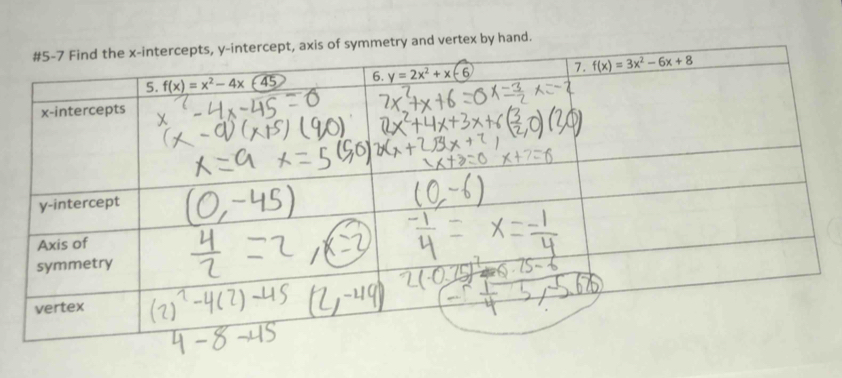 #5-7 Find the x-intercepts, y-intercept, axis of symmetry and vertex by hand.
5. f(x) = x² – 4x – 45
6. y = 2x² + x – 6
7. f(x) = 3x² – 6x + 8
x-intercepts
x² - 4x - 45 = 0
(x - 9)(x+5) (9,0)
x = 9 x = 5 (5,0)
2x²+x+6=0 x=3/2 x=-2
2x²+4x+3x+6 (3/2,0) (2,0)
x+2=0
y-intercept
(0,-45)
(0,-6)
Axis of
symmetry
4/2 = 2, x=2
-1/4 = x = -1/4
vertex
(2)²-4(2)-45 (2,-49)
4-8-45
2(-0.25)²
-1/4